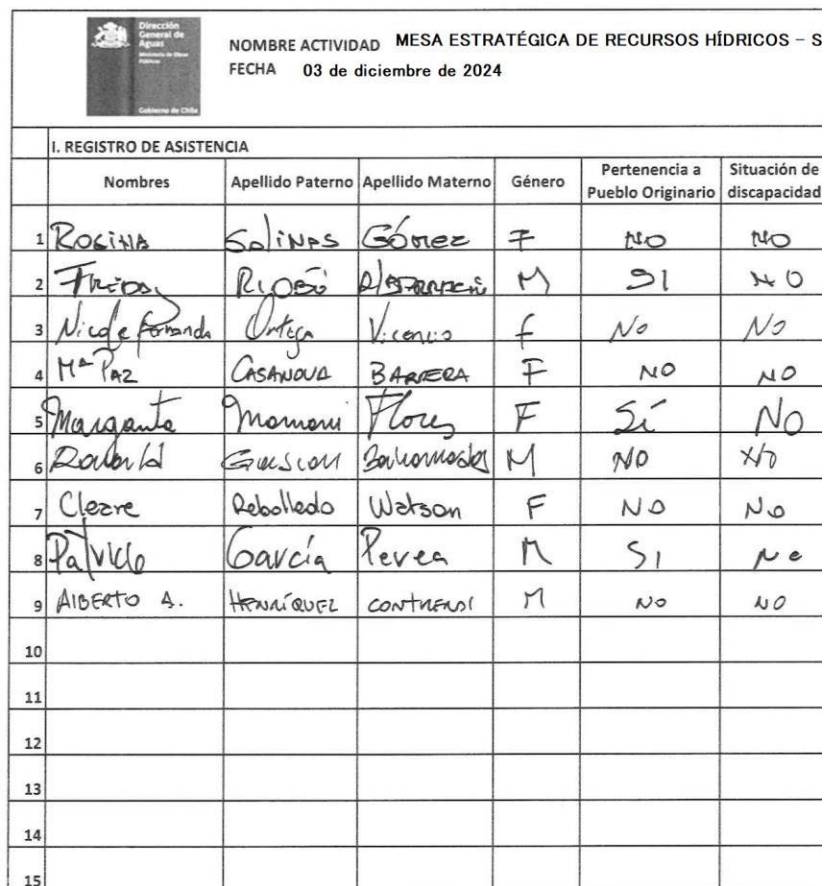 Dirección
General de
Aguas
Ministerio de Obras
Públicas
Gobierno de Chile
NOMBRE ACTIVIDAD MESA ESTRATÉGICA DE RECURSOS HÍDRICOS – S
FECHA 03 de diciembre de 2024
I. REGISTRO DE ASISTENCIA
Nombres Apellido Paterno Apellido Materno Género Pertenencia a Pueblo Originario Situación de discapacidad
1 ROSINA SALINAS GÓMEZ F NO NO
2 M SI NO
3 Nicole Fernanda Ortega Vicencio f No No
4 Mª PAZ CASANOVA BARRERA F NO NO
5 Margarita Mamani Flores F Sí NO
6 Ronald M NO NO
7 Cleare Rebolledo Watson F NO No
8 Patricio García Perea M SI No
9 AlBERTO A. HENRÍQUEZ M NO NO
10
11
12
13
14
15